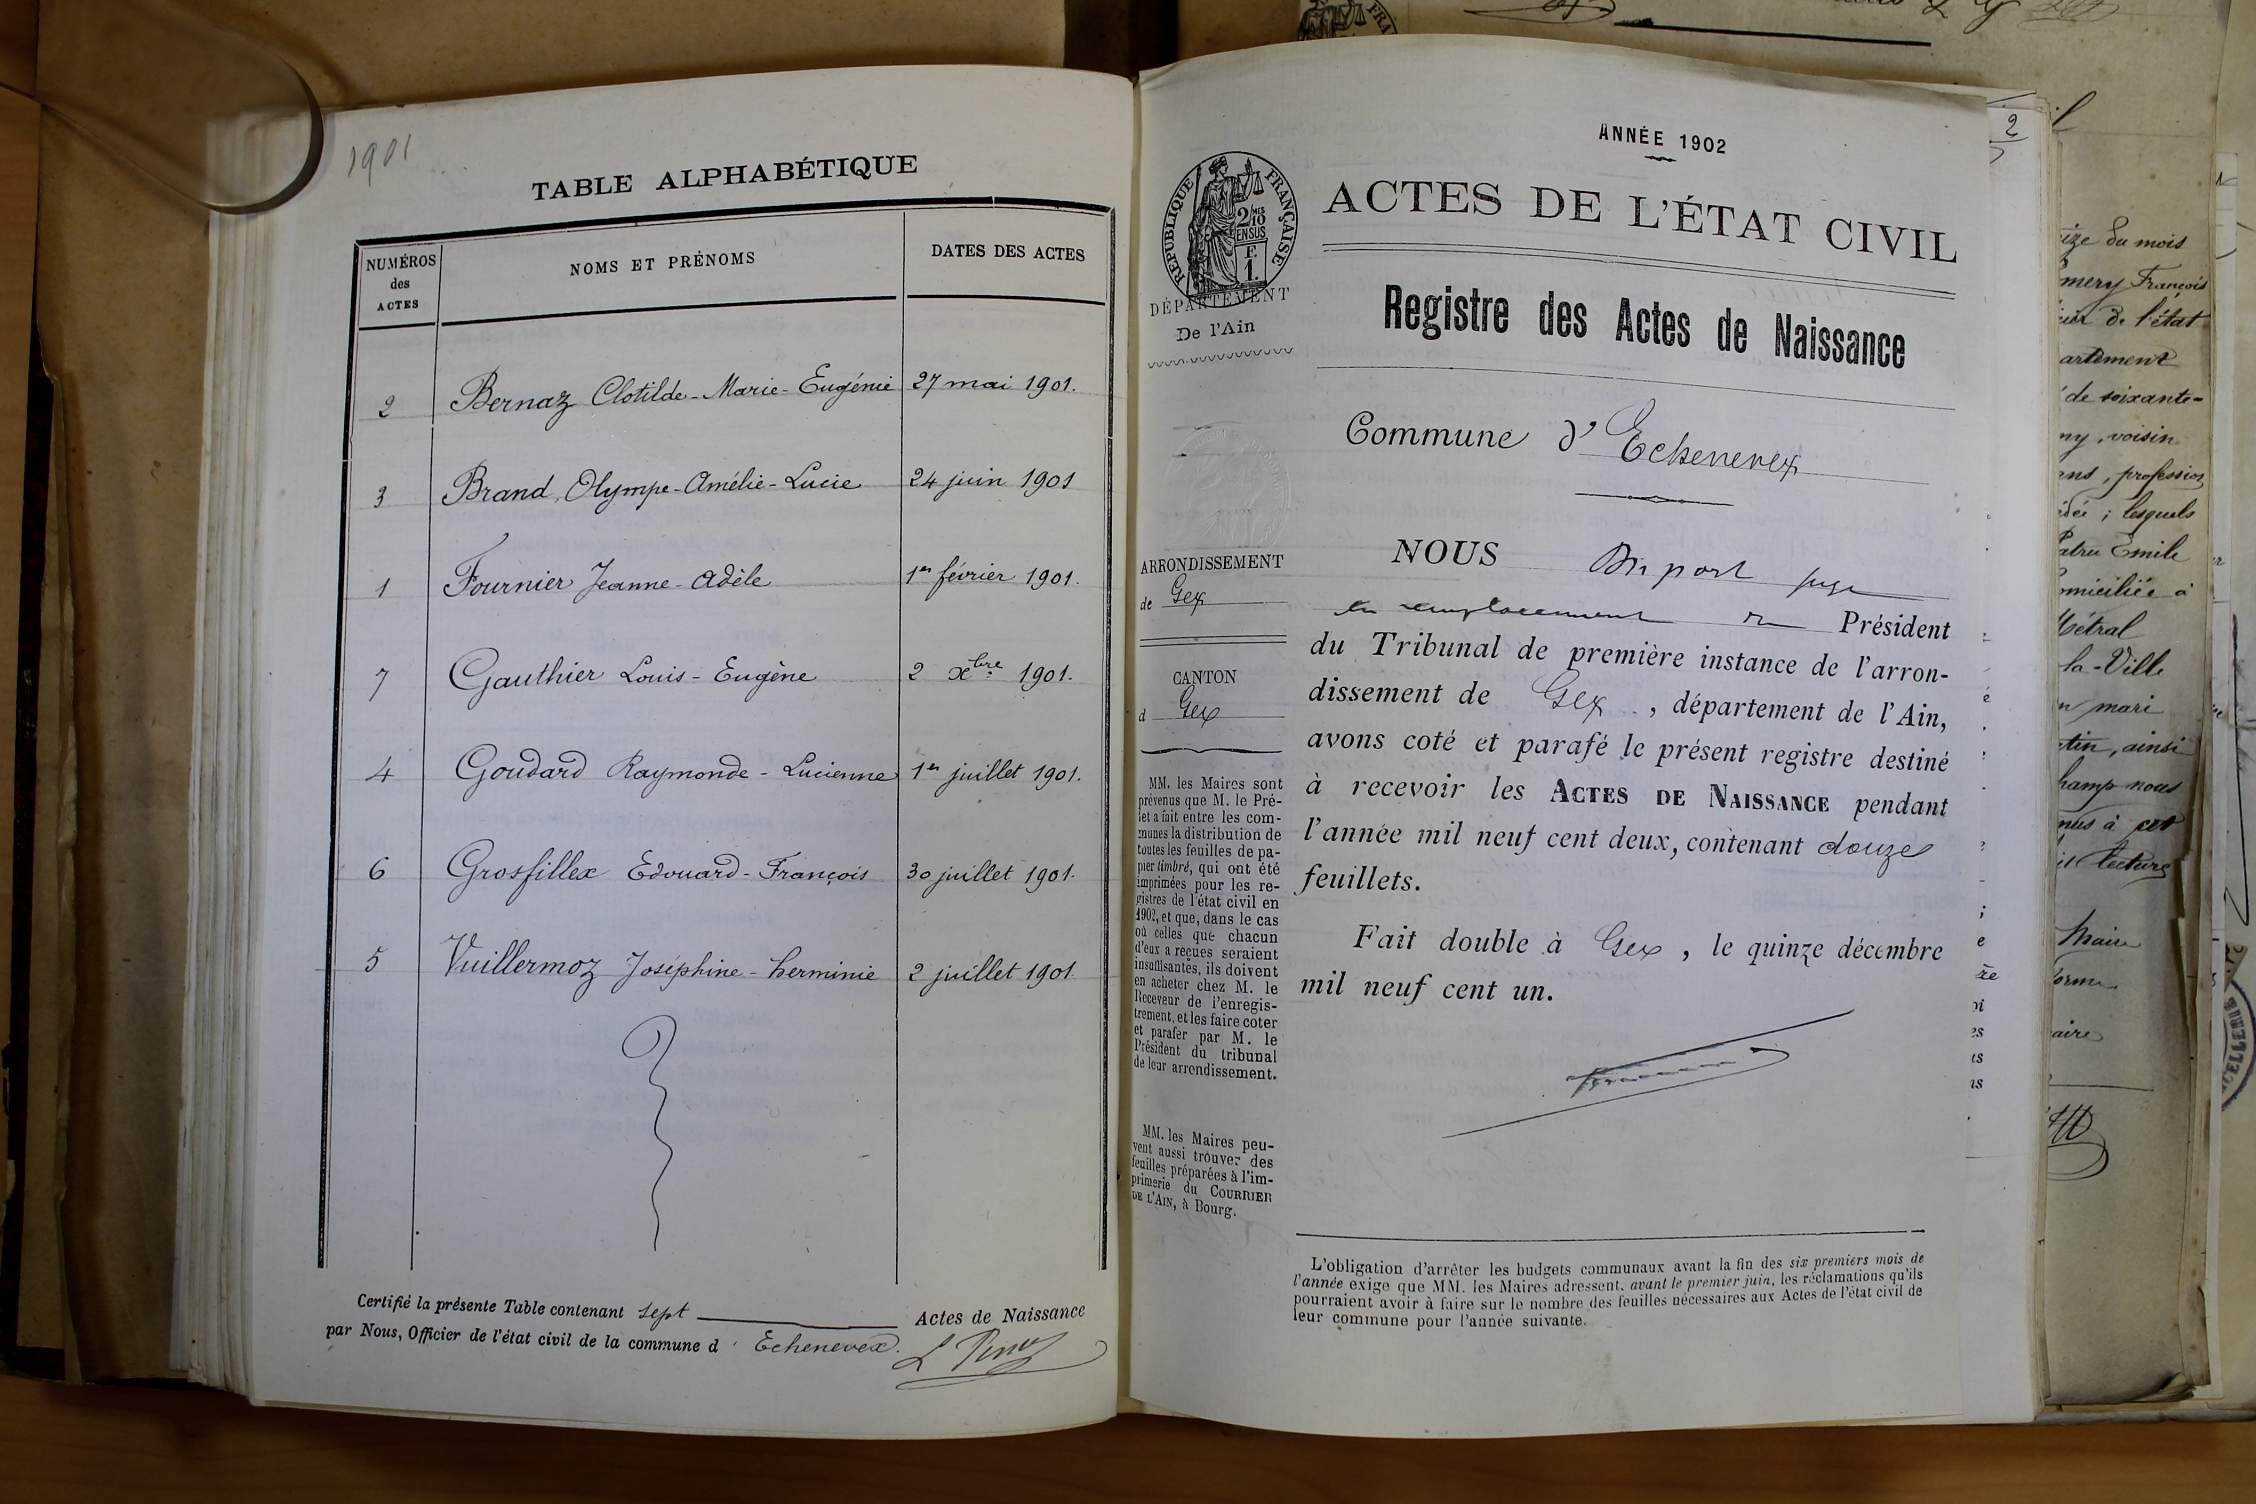 1901
TABLE ALPHABÉTIQUE
NUMÉROS
des
ACTES
NOMS ET PRÉNOMS
DATES DES ACTES
2 Bernaz Clotilde-Marie-Eugénie 27 mai 1901.
3 Brand, Olympe-Amélie-Lucie 24 juin 1901
1 Fournier Jeanne-Adèle 1er février 1901.
7 Gauthier Louis-Eugène 2 xbre 1901.
4 Goudard Raymonde-Lucienne 1er juillet 1901.
6 Grosfillex Edouard-François 30 juillet 1901.
5 Vuillermoz Joséphine-herminie 2 juillet 1901
Certifié la présente Table contenant sept Actes de Naissance
par Nous, Officier de l'état civil de la commune d' Echenevex.
2
ANNÉE 1902
ACTES DE L'ÉTAT CIVIL
RÉPUBLIQUE FRANÇAISE
2/MES 10
EN SUS
F.
1.
DÉPARTEMENT
De l'Ain
Registre des Actes de Naissance
Commune d'Echenevex
ARRONDISSEMENT
de Gex
CANTON
d Gex
MM. les Maires sont
prévenus que M. le Pré-
fet a fait entre les com-
munes la distribution de
toutes les feuilles de pa-
pier timbré, qui ont été
imprimées pour les re-
gistres de l'état civil en
1902, et que, dans le cas
où celles que chacun
d'eux a reçues seraient
insuffisantes, ils doivent
en acheter chez M. le
Receveur de l'enregis-
trement, et les faire coter
et parafer par M. le
Président du tribunal
de leur arrondissement.
MM. les Maires peu-
vent aussi trouver des
feuilles préparées à l'im-
primerie du COURRIER
DE L'AIN, à Bourg.
NOUS juge
en remplacement du Président
du Tribunal de première instance de l'arron-
dissement de Gex, département de l'Ain,
avons coté et parafé le présent registre destiné
à recevoir les ACTES DE NAISSANCE pendant
l'année mil neuf cent deux, contenant douze
feuillets.
Fait double à Gex, le quinze décembre
mil neuf cent un.
L'obligation d'arrêter les budgets communaux avant la fin des six premiers mois de
l'année exige que MM. les Maires adressent, avant le premier juin, les réclamations qu'ils
pourraient avoir à faire sur le nombre des feuilles nécessaires aux Actes de l'état civil de
leur commune pour l'année suivante.
du mois
François
de l'état
de soixante-
voisin
profession
; lesquels
Emile
domiciliée à
Métral
la-Ville
mari
, ainsi
nous
à cet
lecture
Maire